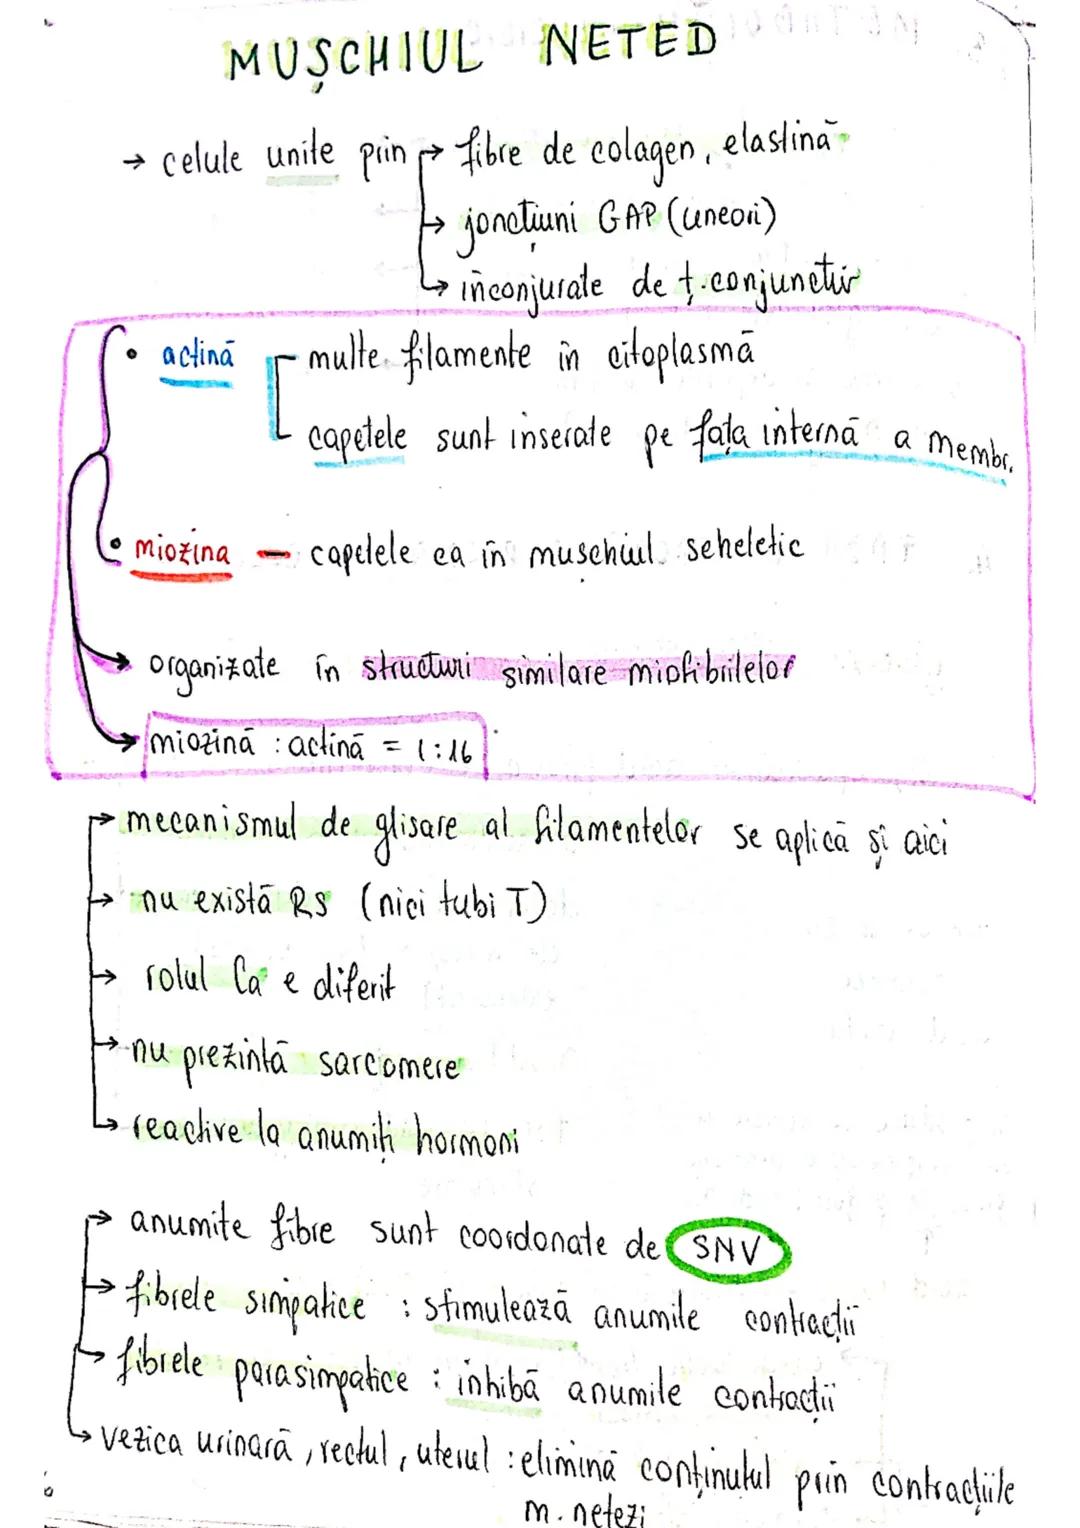 MUȘCHIUL NETED
→ celule unite prin → fibre de colagen, elastină
→ joncțiuni GAP (uneori)
→ înconjurate de ț. conjunctiv
• actină multe filamente în citoplasmă
capetele sunt inserate pe fața internă a membr.
• miozina - capetele ca în muschiul scheletic
→ organizate în structuri similare miofibrilelor
→ miozină : actină = 1:16
→ mecanismul de glisare al filamentelor se aplică și aici
→ nu există RS (nici tubi T)
→ rolul Ca e diferit
→ nu prezintă sarcomere
→ reactive la anumiți hormoni
→ anumite fibre sunt coordonate de SNV
→ fibrele simpatice : stimulează anumite contracții
→ fibrele parasimpatice : inhibă anumite contracții
→ vezica urinară, rectul, uterul : elimină conținutul prin contracțiile
m. netezi